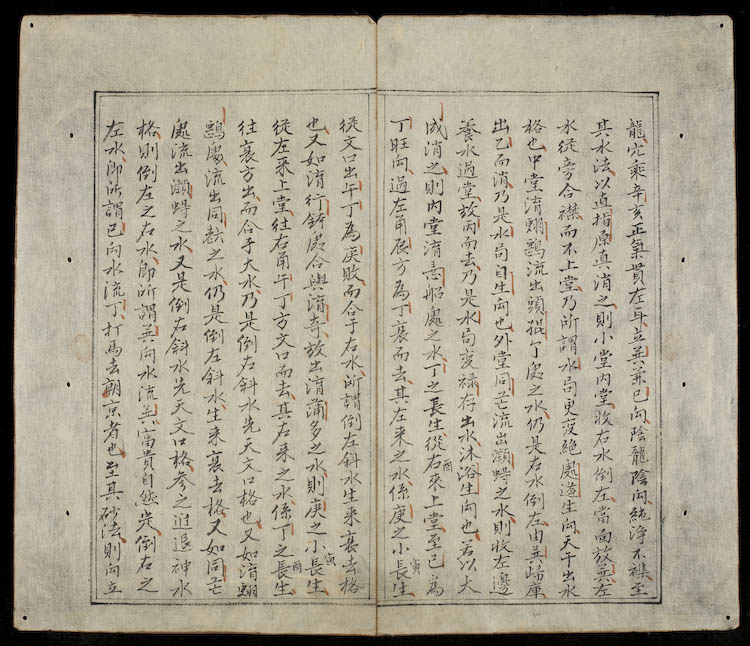 龍穴乘辛亥正氣貫左耳立巽兼巳向陰龍陰向純淨不襍至
其水法以直指原真消之則小堂內堂收右水倒左當面放巽左
水從旁合襟而不上堂乃所謂水局更彧絕處逢生向天干出水
格也中堂淯𩿘鵝流出頭提丁處之水仍是右水倒左由巽歸庫
出乙而消乃是水局自生向也外堂同芒流出瀕𡬶之水則收左邊
養水過堂放丙而去乃是水局變祿存出水沐浴生向也若以大
成消之則內堂淯忌船處之水丁之長生從右酉來上堂至巳為
丁旺向過左角辰方為丁衰而去其左來之水係庚之小長寅生
從文口出午丁為庚敗而合于右水所謂倒左斜水生來衰去格
也又如淯行鉢處合與淯奇放出淯蒲多之水則庚之小長寅生
從左來上堂往右角午丁方文口而去其右來之水係丁之長酉生
往衰方出而合于大水乃是倒右斜水先天文口格也又如淯𩿘
鵝處流出同㪍之水仍是倒左斜水生來衰去格又如同芒
處流出瀕𡬶之水又是倒右斜水先天文口格參之進退神水
格則倒左之右水即所謂巽向水流巽富貴自然定倒右之
左水即所謂巳向水流丁打馬去朝京者也至其砂法則向立